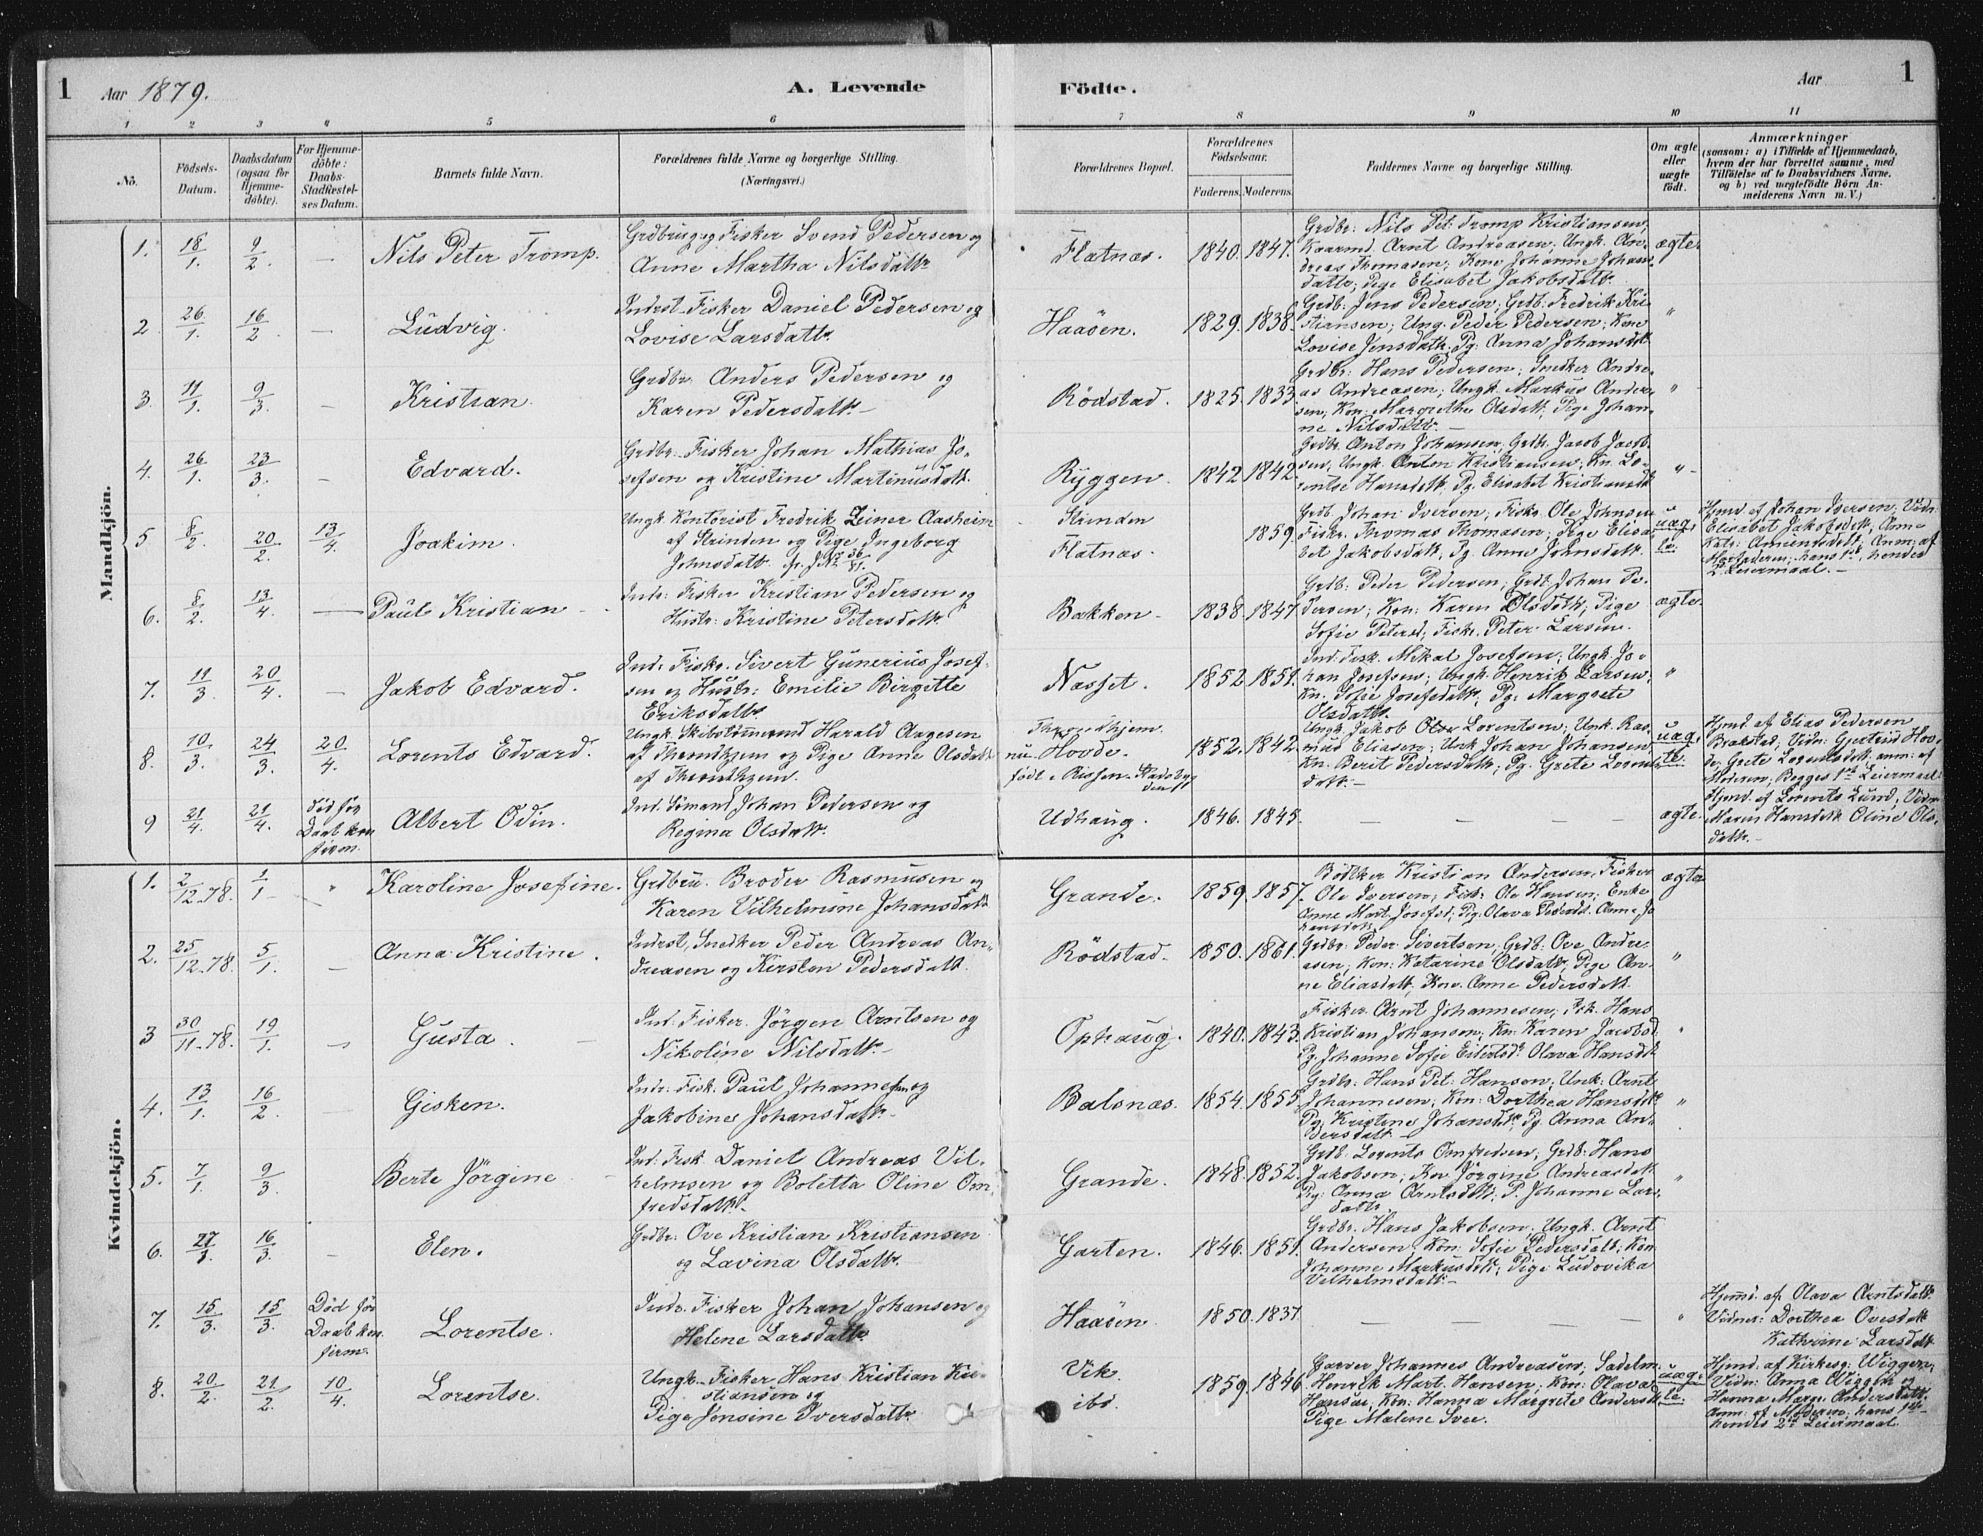 1 Aar 1879. A. Levende Födte. Aar 1
1 2 3 4 5 6 7 8 9 10 11
No. Födsels-Datum. Daabsdatum (ogsaa for Hjemme-döbte). For Hjemme-döbte: Daabs-Stadfæstel-ses Datum. Barnets fulde Navn. Forældrenes fulde Navne og borgerlige Stilling. (Næringsvei.) Forældrenes Bopæl. Forældrenes Födselsaar. Faderens. Moderens. Faddernes Navne og borgerlige Stilling. Om ægte eller uægte födt. Anmærkninger (saasom: a) i Tilfælde af Hjemmedaab, hvem der har forrettet samme, med Tilföielse af to Daabsvidners Navne, og b) ved uægtefödte Börn An-meiderens Navn m.V.)
Mandkjön.
1. 18/1. 9/2. — Nils Peter Tromp. Grdbrug og Fisker Svend Pedersen og
Anne Martha Nilsdattr Flatnæs. 1840. 1847. ægte
Grdbr: Nils Pet. Tromp Kristiansen,
Kaarmd. Arnt Andreasen, Ungk. An-
dreas Thomasen; Kone Johanne Johans-
dattr; Pige Elisabet Jakobsdatt.
2. 26/1. 16/2. — Ludvig. Indrst. Fisker Daniel Pedersen og
Lovise Larsdattr. Haaöen. 1829. 1838. "
Grdb: Jens Pedersen; Grdb: Fredrik Kri-
stiansen; Ung. Peder Pedersen; Kone
Lovise Jensdatt. Pg. Anna Johansdt
3. 11/1. 9/3. — Kristian. Grdbr: Anders Pedersen og
Karen Pedersdattr — Rödstad. 1825. 1833. "
Grdbr: Hans Pedersen; Snedker Andre-
as Andreasen; Ungk. Markus Ander-
sen; Kon: Margrethe Olsdatt, Pige Johan-
ne Nilsdatt. —
4. 26/1. 23/3. — Edvard. Grdbr. Fisker Johan Mathias Jo-
sefsen og Kristine Martinusdatt. Ryggen. 1842 1842. "
Grdbr. Anton Johansen; Grdb. Jacob Jacob-
sen, Ungk Anton Kristiansen; Kn. Lo-
rentse Hansdatt, Pg. Elisabet Kristiansdt
5 8/2. 20/2. 13/4. Joakim. Ungk. Kontorist Fredrik Zeiner Aasheim
af Strinden og Pige Ingeborg
Johnsdatt. Strinden
Flatnæs. 1859. uæg-te.
Grdb. Johan Iversen; Fisk. Ole Johnsen
Fiskr. Thomas Thomasen; Pige Elisa-
bet Jakobsdatt, Pg. Anne Johnsdatt.
Hjmd. af Johan Iversen; Vidn:
Elisabet Jakobsdatt, Anne
Anm: af
Morfaderen; hans 1st, hendes
2d Leiermaal. —
6. 8/2. 13/4. — Paul Kristian Indr: Fisker Kristian Pedersen og
Hustr: Kristine Petersdatt. Bakken. 1838. 1847. ægte.
Grdb: Peder Pedersen; Grdb. Johan Pe-
dersen; Kon: Karen Olsdatt, Pige
Sofie Petersd; Fisk. Peter Larsen.
7. 11/3. 20/4. — Jakob Edvard. Ind. Fiskr. Sivert Gunerius Josef-
sen og Hustr: Emilie Birgitte
Eriksdatt. Næsset. 1852. 1851. "
Ind. Fisk. Mikal Josefsen; Ungk. Jo-
han Josefsen; Ungk. Henrik Larsen,
Kn. Sofie Josefsdatt; Pg. Margrete
Olsdatt.
8. 10/3. 24/3. 20/4. Lorents Edvard. Ungk. Skibstömmermd Harald Aagesen
af Throndhjem og Pige Anne Olsdatt
af Throndhjem. Throndhjem
nu Hovde.
födt i Rissen. 1852. 1842. uæg-te.
Ungk. Jakob Olav Lorentsen; Unk. Ras-
mus Eliasen; Unk. Johan Johansen,
Kn. Berit Pedersdatt, Pg. Grete Lorents-
datt. —
Hjmd. af Elias Pedersen
Brakstad; Vidn: Gjertrud Hov-
de, Grete Lorentsdatt, anm: af
Moderen; Begges 1st Leiermaal.
9 21/4. 21/4. död för Daab kon firm. Albert Odin. Ind. Sömand Johan Pedersen og
Regina Olsdatt. Udhaug. 1846. 1845. — — — — ægte.
Hjmd. af Lorents Lund, Vidn:
Maren Hansdatt Oline Ols-
datt. —
Kvindekjön.
1. 2/12.78. 1/1 " Karoline Josefine. Grdbru. Broder Rasmusen og
Karen Vilhelmine Johansdatt Grande. 1859. 1857. ægte
Bödtker Kristian Andersen, Fisker
Ole Iversen, Fisk: Ole Hansen; Enke
Anne Mart. Josefsd; Pg. Olava Pedersdt. Anne Jo
hansdatt.
2. 25/12.78. 5/1. — Anna Kristine. Indrst, Snedker Peder Andreas An-
dreasen og Kirsten Pedersdatt. Rödstad. 1850. 1861. "
Grdbr. Peder Sivertsen, Grdb. Ove Andre-
asen, Kon: Katarine Olsdatt, Pige An-
ne Eliasdatt, Kne. Anne Pedersdatt.
3 30/11.78. 19/1. — Gusta. Ind. Fisker. Jörgen Arntsen og
Nikoline Nilsdatt. — Ophaug. 1840. 1843. "
Fisker Arnt Johannesen, Fsk. Hans
Kristian Johansen, Kn: Karen Jacobsd.
Pg. Johanne Sofie Eilertsdt Olava Hansdt.
4. 13/1. 16/2. — Gisken. Indr: Fisk. Paul Johannesen og
Jakobine Johansdatt. Balsnæs. 1854. 1855. "
Grdbr: Hans Pet. Hansen; Unk: Arnt
Johannesen; Kon: Dorthea Hansdt
Pg. Kristine Johansdt. Pg. Anna An-
dersdatt. —
5. 7/1. 9/3. Berte Jörgine Ind. Fisk. Daniel Andreas Vil-
helmsen og Boletta Oline Om-
fredsdatt. Grande. 1848. 1852. "
Grdb. Lorents Omfredsen; Grdb: Hans
Jakobsen; Kn Jörgine Andreasdatt.
Pig: Anna Arntsdatt; P. Johanne Lars-
datt.
6. 27/1. 16/3. — Elen. Grdbr. Ove Kristian Kristiansen
og Lavina Olsdatt. Garten. 1846. 1851.
Grdbr. Hans Jakobsen, Ungk. Arnt
Andersen, Kon: Sofie Pedersdatt; Kon.
Johanne Markusdatt; Pige Ludovika
Vilhelmsdatt. —
7. 15/3. 15/3. Död för Daab kon firm. Lorentse. Indr. Fisker Johan Johansen og
Helene Larsdatt. Haaöen 1850. 1837. — — — — "
Hjmd. af Olava Arntsdatt.
Vidner: Dorthea Ovesdatt
Kathrine Larsdatt
8. 20/2. 21/2. 10/4. Lorentse. Ungk. Fisker Hans Kristian Kri-
stiansen og
Pige Jonsine Iversdatt. Vik.
ibd. 1859. 1846. uæg-te.
Garver Johannes Andreasen; Sadelm.
Henrik Mart. Hansen, Kon: Olava
Hansen, Kon. Hanna Margrete Andersdt
Pige Malene Ivers.
Hjmd. af Kirkesg: Wiggen,
Vidn: Anna Wiggen og
Hanna Marg. Andersdatt.
Anm: af Moderen, hans 1ste
hendes 2d Leiermaal.